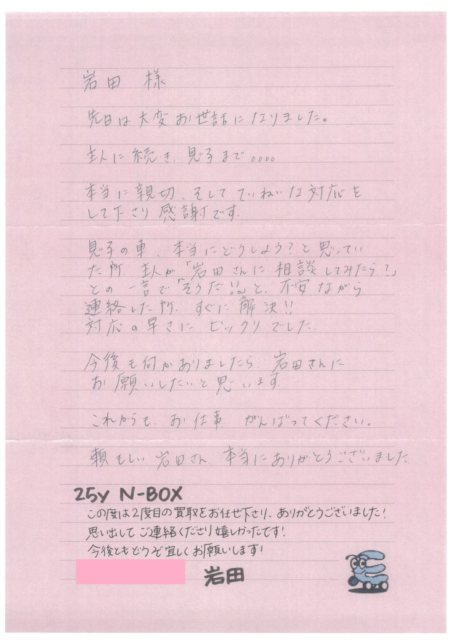 岩田 様
先日は大変お世話になりました。
主人に続き、息子まで。。。。
本当に親切、そしてていねいな対応を
して下さり感謝です。
息子の車、本当にどうしよう?と思ってい
た所 主人が「岩田さんに相談してみたら?」
との一言で「そうだ!!」と、不安ながら
連絡した所、すぐに解決!!
対応の早さに ビックリでした。
今後も何かありましたら、岩田さんに
お願いしたいと思います。
これからも お仕事 がんばってください。
頼もしい岩田さん、本当にありがとうございました
25y N-BOX
この度は2度目の買取をお任せ下さり、ありがとうございました!
思い出してご連絡くださり嬉しかったです!
今後ともどうぞ宜しくお願いします!
岩田